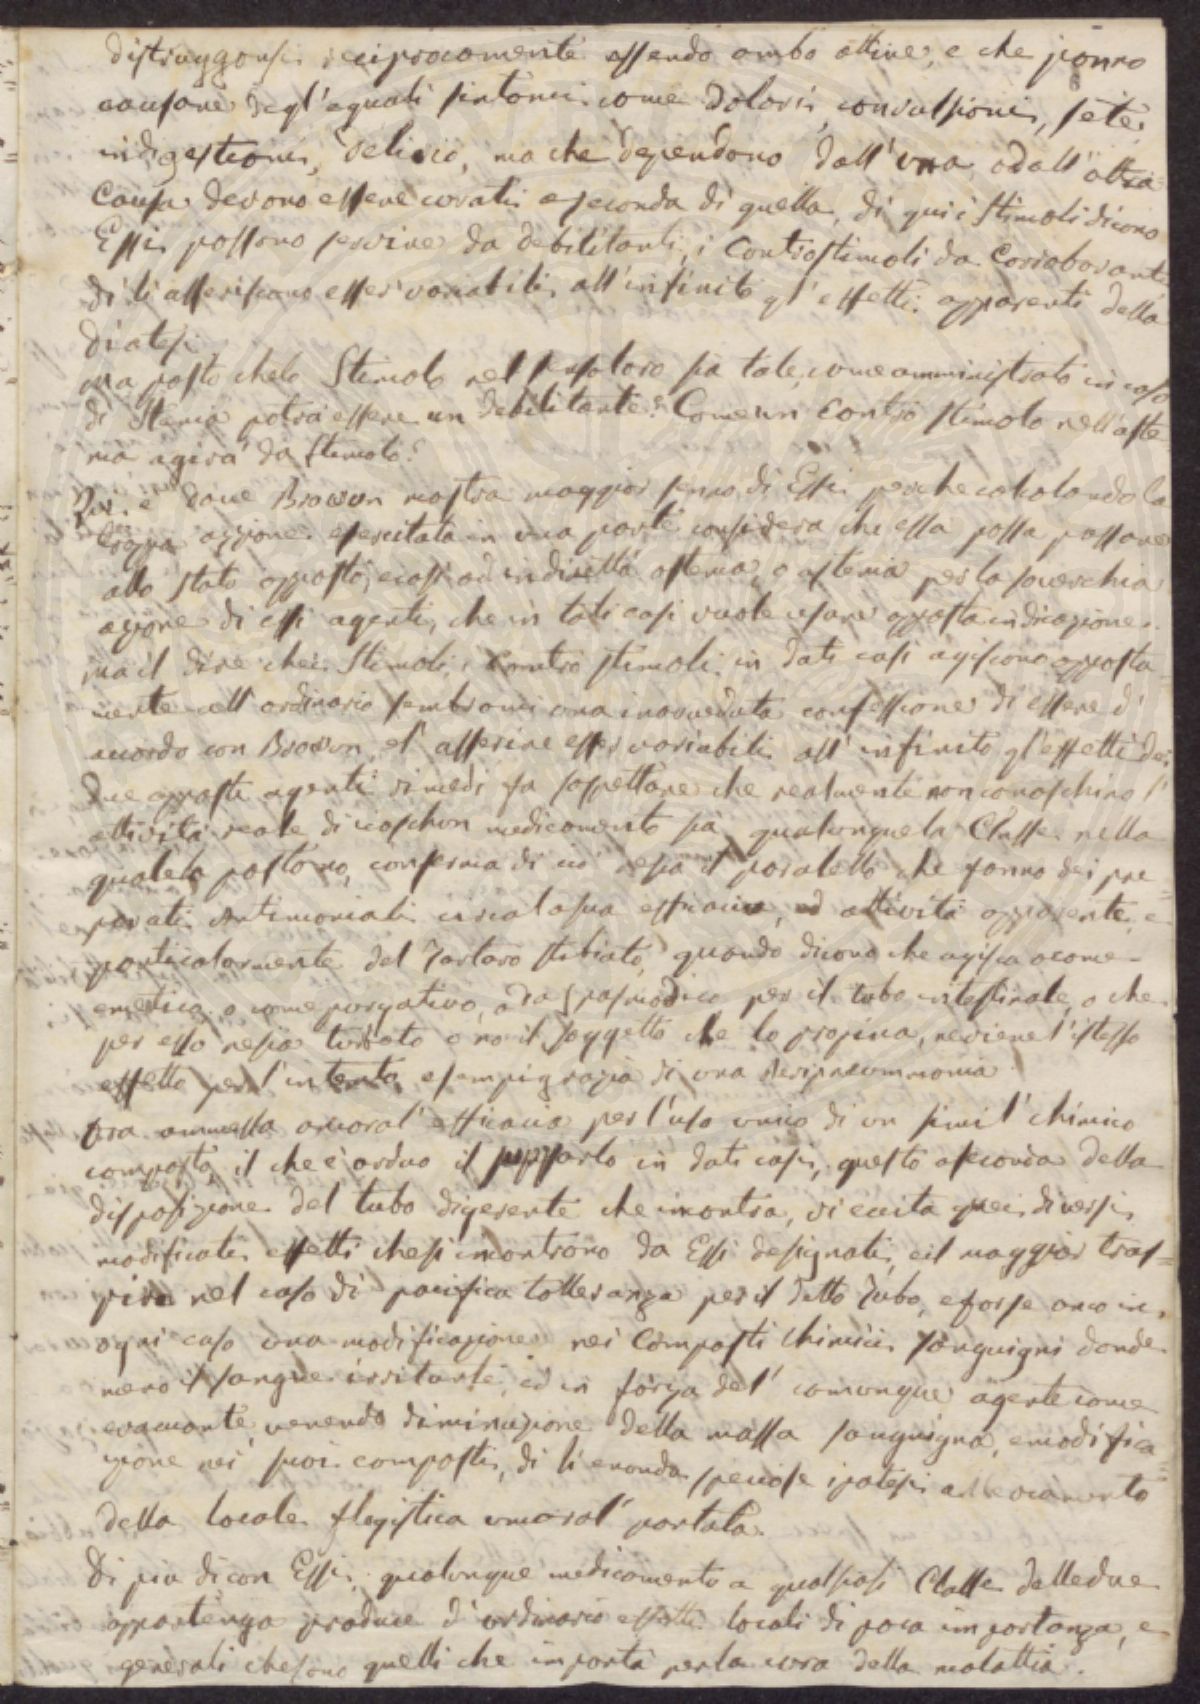 distruggonsi reciprocamente essendo ambo attive, e che ponno
causare degl'eguali sintomi come dolori, convulsioni, sete,
indigestioni, delirio, ma che dependono dall'una o dall'altra
Causa devono essere curati a seconda di quella, di qui i stimoli dicono
Essi possono servire da debilitanti, i Controstimoli da Corroboranti
di li asseriscono esser variabili all'infinito gl'effetti apparenti della
diatesi
ma posto che lo Stimolo nel sia tale, come amministrato in caso
di Stenia potrà essere un debilitante? Come un Contro stimolo nell'aste
nia agirà da stimolo?
Qui è dove Browon mostra maggior senno di Essi perche calcolando la
troppa azzione esercitata in una parte considera che essa possa passare
allo stato opposto, e così ad indiretta astenia, o astenia per la soverchia
azione di essi agenti, che in tali casi vuole usare opposta indicazione.
ma il dire che i Stimoli, i Contro stimoli in dati casi agiscono opposta
mente all'ordinario sembrami una inaveduta confessione di essere d'
accordo con Browon, e l'asserire esser variabili all'infinito gl'effetti dei
due opposti agenti rimedi fa sospettare che realmente non conoschino l'
attività reale di ciaschun medicamento sia qualunque la Classe nella
quale lo postono, conferma di ciò resta il paralello che fanno dei pre=
parati Antimoniali circa la sua efficacia, ed attività apparente, e
particolarmente del Tartaro stibiato, quando dicono che agisca o come
emetico, o come purgativo, o da spasmodico per il tubo intestinale, o che
per esso ne sia turbato o no il soggetto che lo propina, ne viene l'istesso
effetto per l'intento, esempigrazia di una peripneumonia
Ora ammessa ancora l'efficacia per l'uso unico di un simil' chimico
composto, il che è arduo il in dati casi, questo a seconda della
disposizione del tubo digerente che incontra, vi eccita quei diversi
modificati effetti che si incontrono da Essi designati, e il maggior tras=
pira nel caso di pacifica tolleranza per il detto Tubo, e forse anco in
ogni caso una modificazione nei Composti Chimici sanguigni donde
meno il sangue irritante, ed in forza del' comunque agente come
evacuante venendo diminuzione della massa sanguigna, e modifica=
zione nei suoi composti, di li speciose ipotesi
della locale flogistica umoral' portata.
Di piu dicon Essi, qualunque medicamento a qualsiasi Classe delle due
appartenga produce d'ordinario effetti locali di poca importanza, e
generali che sono quelli che importa per la cura della malattia.